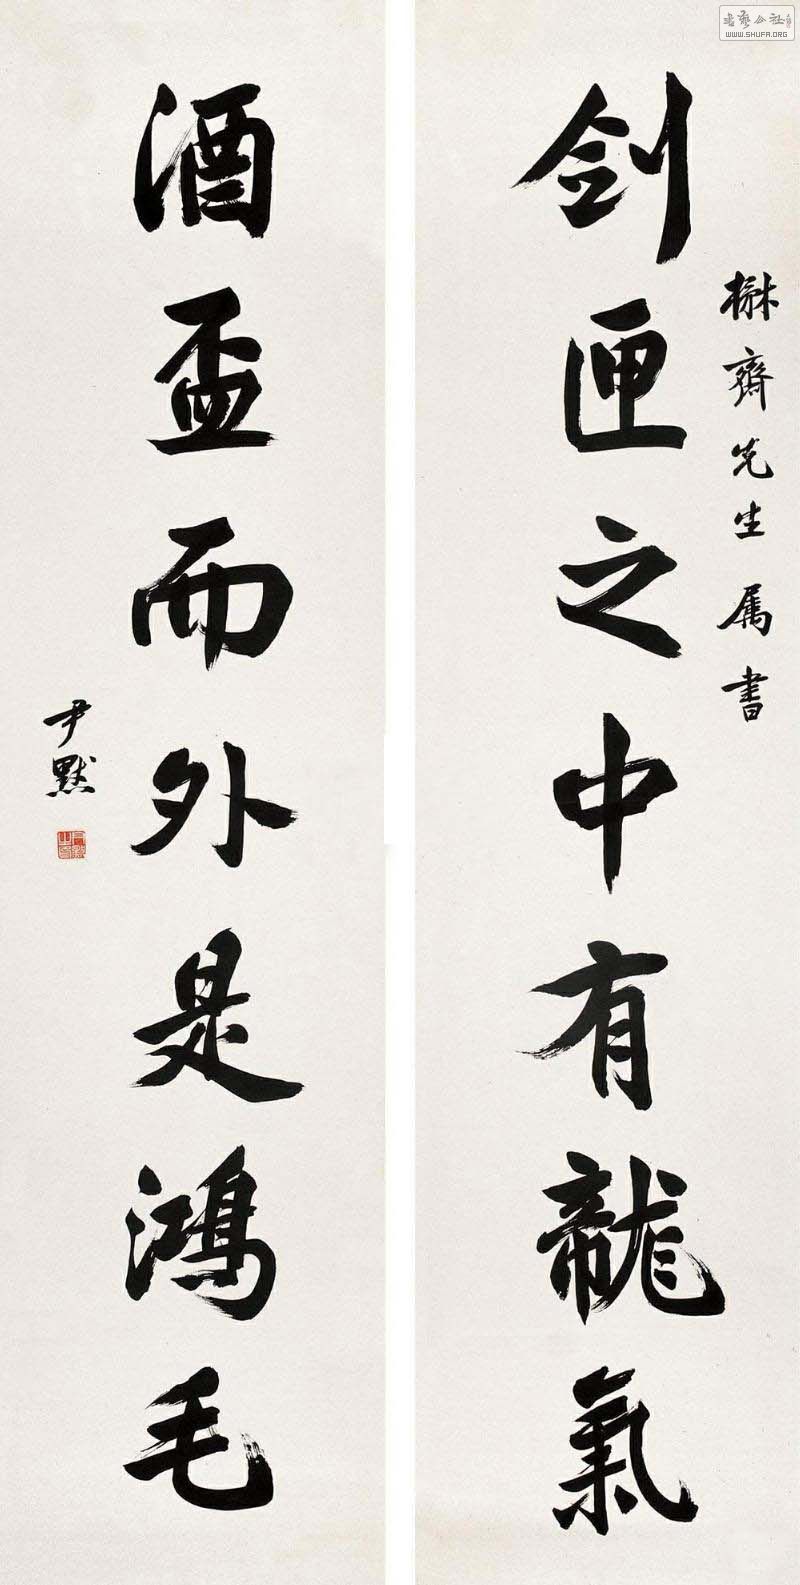 書藝公社
WWW.SHUFA.ORG
楙齊先生属書
剑匣之中有龍氣
酒盃而外是鴻毛
尹默